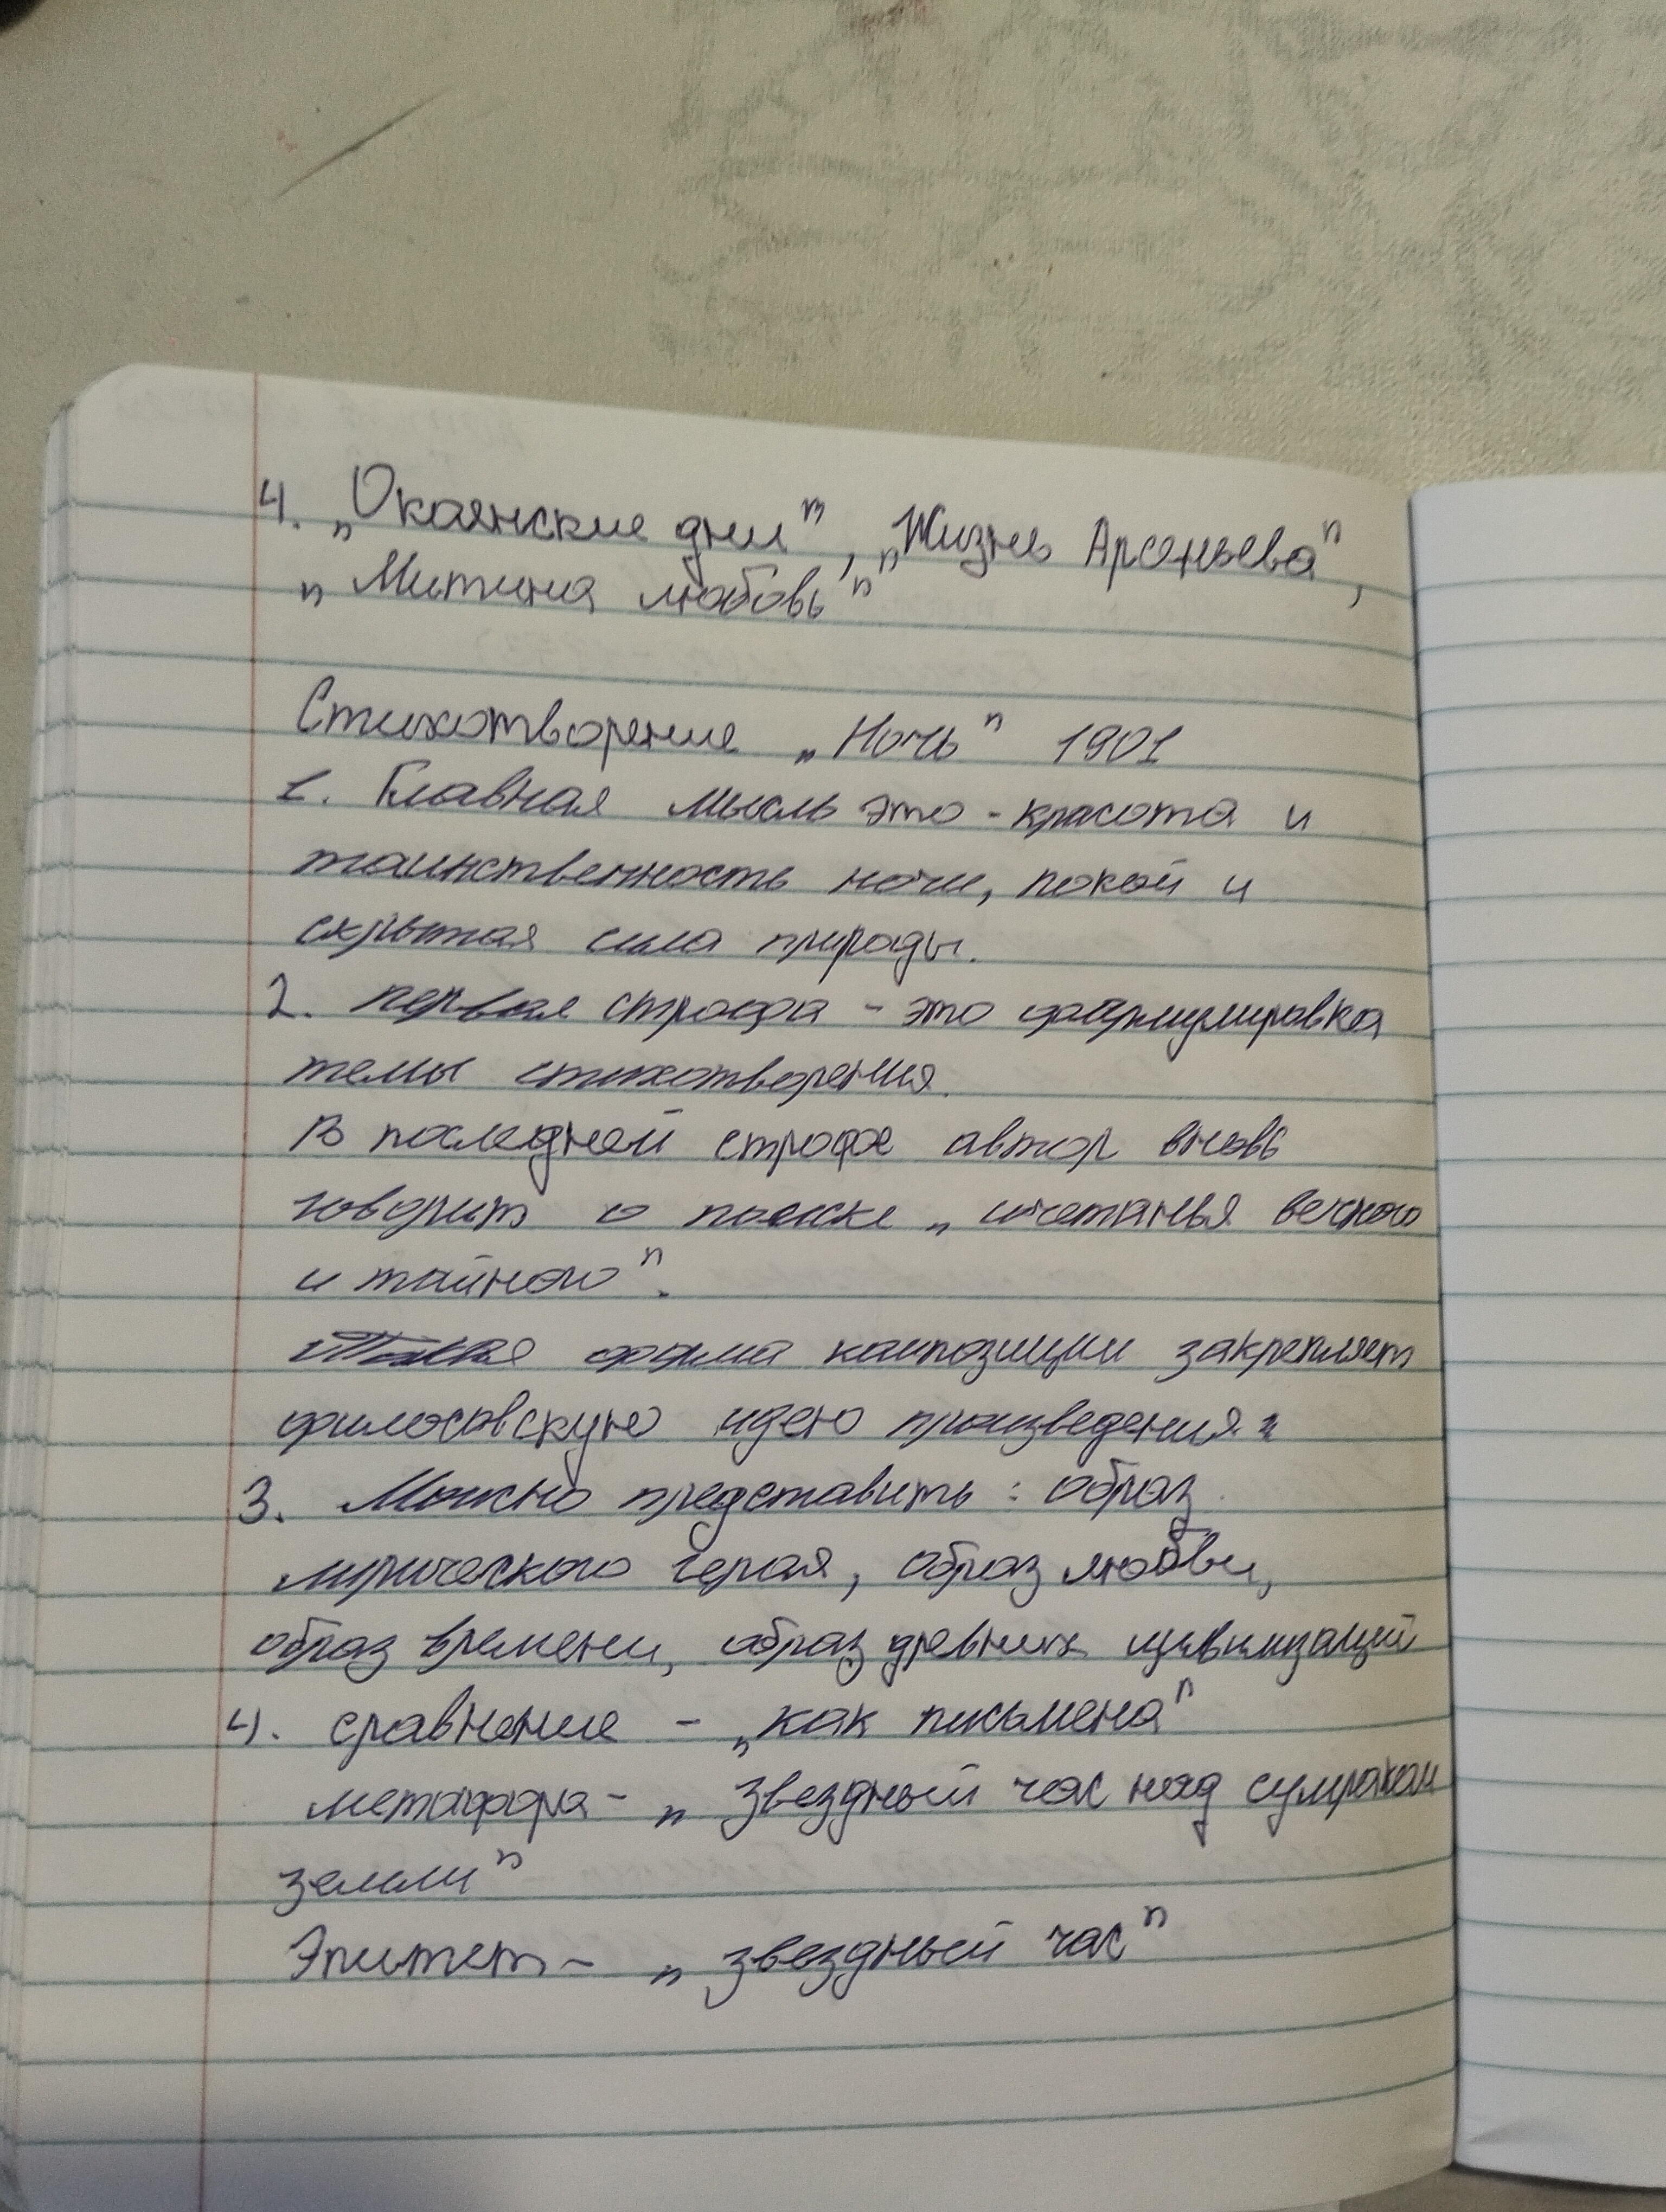 4. „Окаянские дни", „Жизнь Арсеньева",
„Митина любовь"
Стихотворение „Ночь" 1901
1. Главная мысль это - красота и
таинственность ночи, покой и
скрытая сила природы.
2. первая строфа - это формулировка
темы стихотворения.
В последней строфе автор вновь
говорит о поиске „сочетанья вечного
и тайного".
Такая форма композиции закрепляет
философскую идею произведения.
3. Можно представить: образ
лирического героя, образ любви,
образ времени, образ древних цивилизаций
4. сравнение - „как письмена"
метафора - „звездный час над сумраком
земли"
Эпитет - „звездный час"